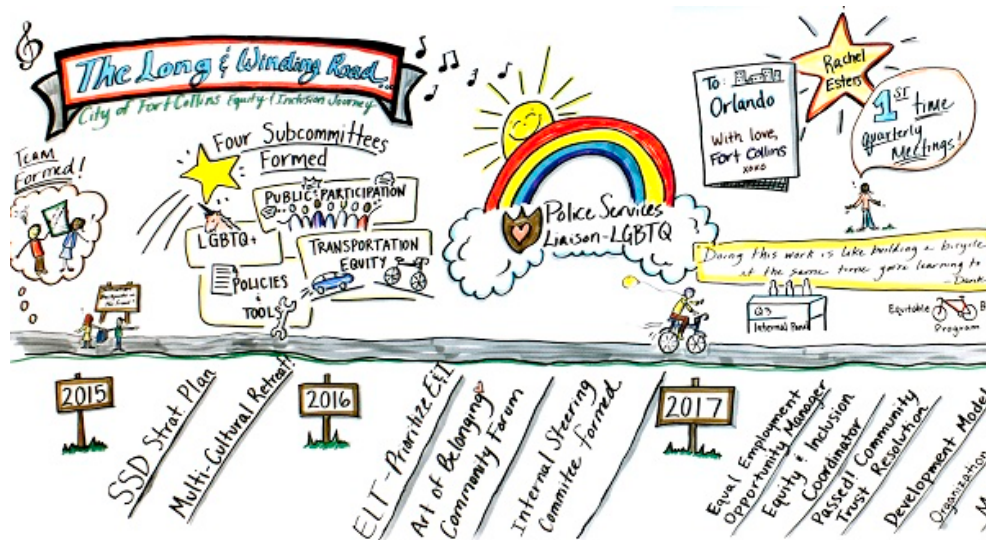 The Long & Winding Road...
City of Fort Collins Equity & Inclusion Journey
Team
Formed!
Four Subcommittees
Formed
PUBLIC PARTICIPATION
LGBTQ+
TRANSPORTATION
EQUITY
POLICIES
&
TOOLS
Police Services
Liaison-LGBTQ
To:
Orlando
With love,
Fort Collins
xoxo
Rachel
Esters
1ST time
quarterly
Meetings!
"Doing this work is like building a bicycle
at the same time you're learning to
Q3
Internal
Equitable
Program
2015
SSD Strat. Plan
Multi-Cultural Retreat!
2016
ELT-Prioritize E&I
Art of Belonging
Community Forum
Internal Steering
Committee formed
2017
Equal Employment
Opportunity Manager
Equity & Inclusion
Coordinator
Passed! Community
Trust Resolution
Development Model